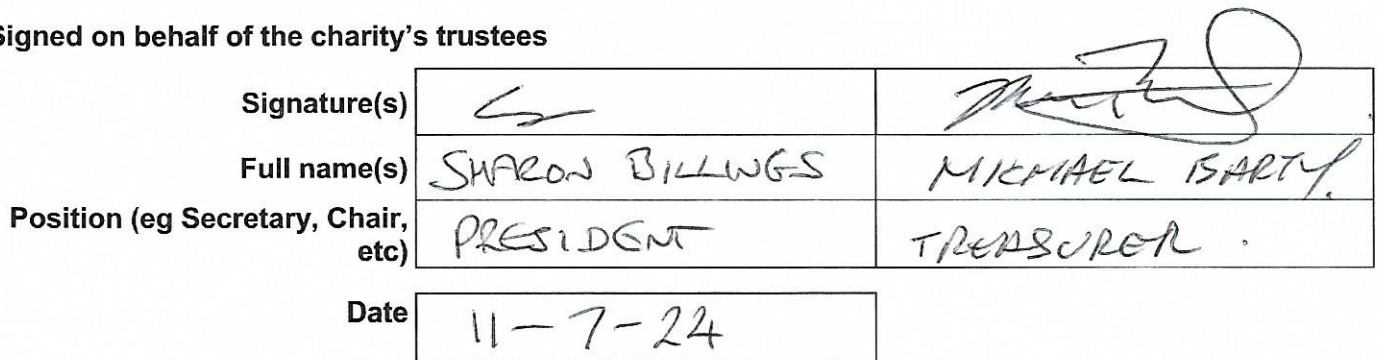 Signed on behalf of the charity's trustees
Signature(s)
Full name(s) SHARON BILLINGS MICHAEL BARTY.
Position (eg Secretary, Chair, PRESIDENT TREASURER.
etc)
Date 11-7-24